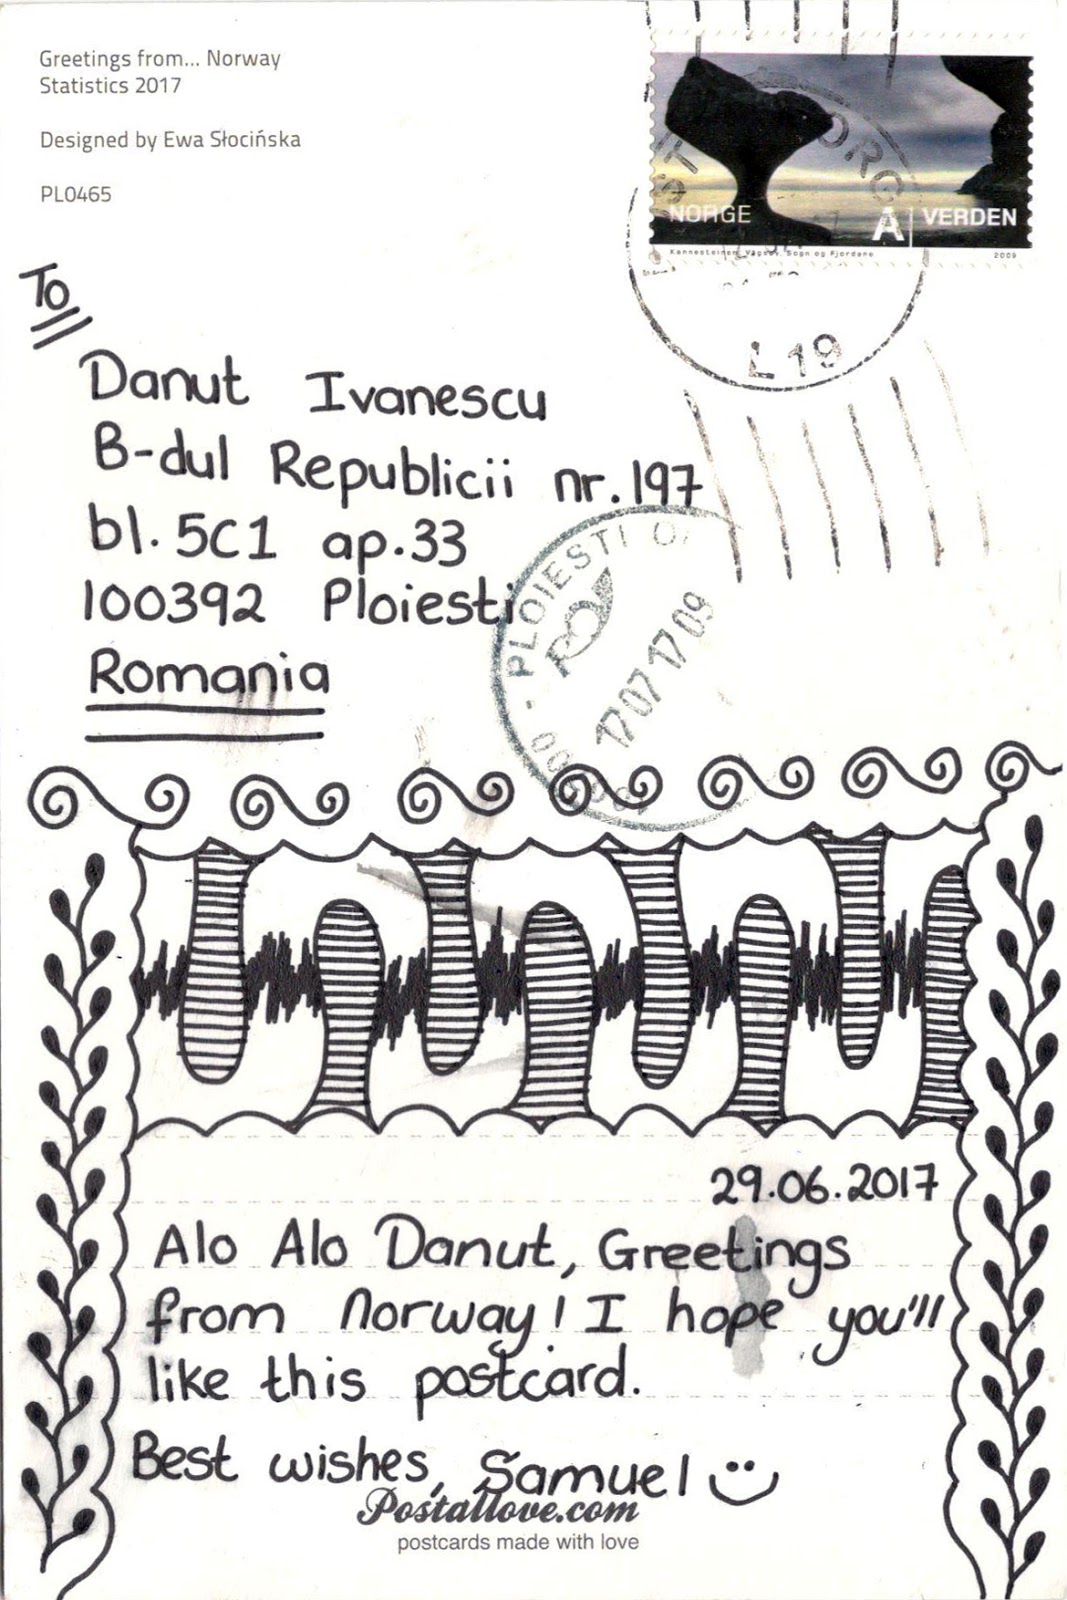 Greetings from... Norway
Statistics 2017
Designed by Ewa Słocińska
PL0465
NORGE
A VERDEN
Kannesteinen, Vågsøy, Sogn og Fjordane
2009
L19
To
Danut Ivanescu
B-dul Republicii nr.197
bl. 5C1 ap.33
100392 Ploiesti
Romania
PLOIESTI
17 07 17 09
29.06.2017
Alo Alo Danut, Greetings
from Norway! I hope you'll
like this postcard.
Best wishes, Samuel
Postallove.com
postcards made with love